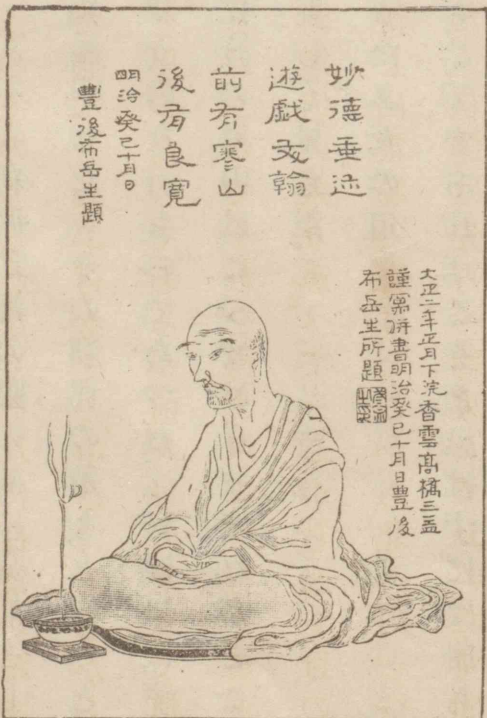 妙德垂迹
遊戯文翰
前有寒山
後有良寛
明治癸巳十月日
豐後布岳生題
大正二年正月下浣香雲髙橋三
謹寫併書明治癸巳十月日豐後
布岳生所題